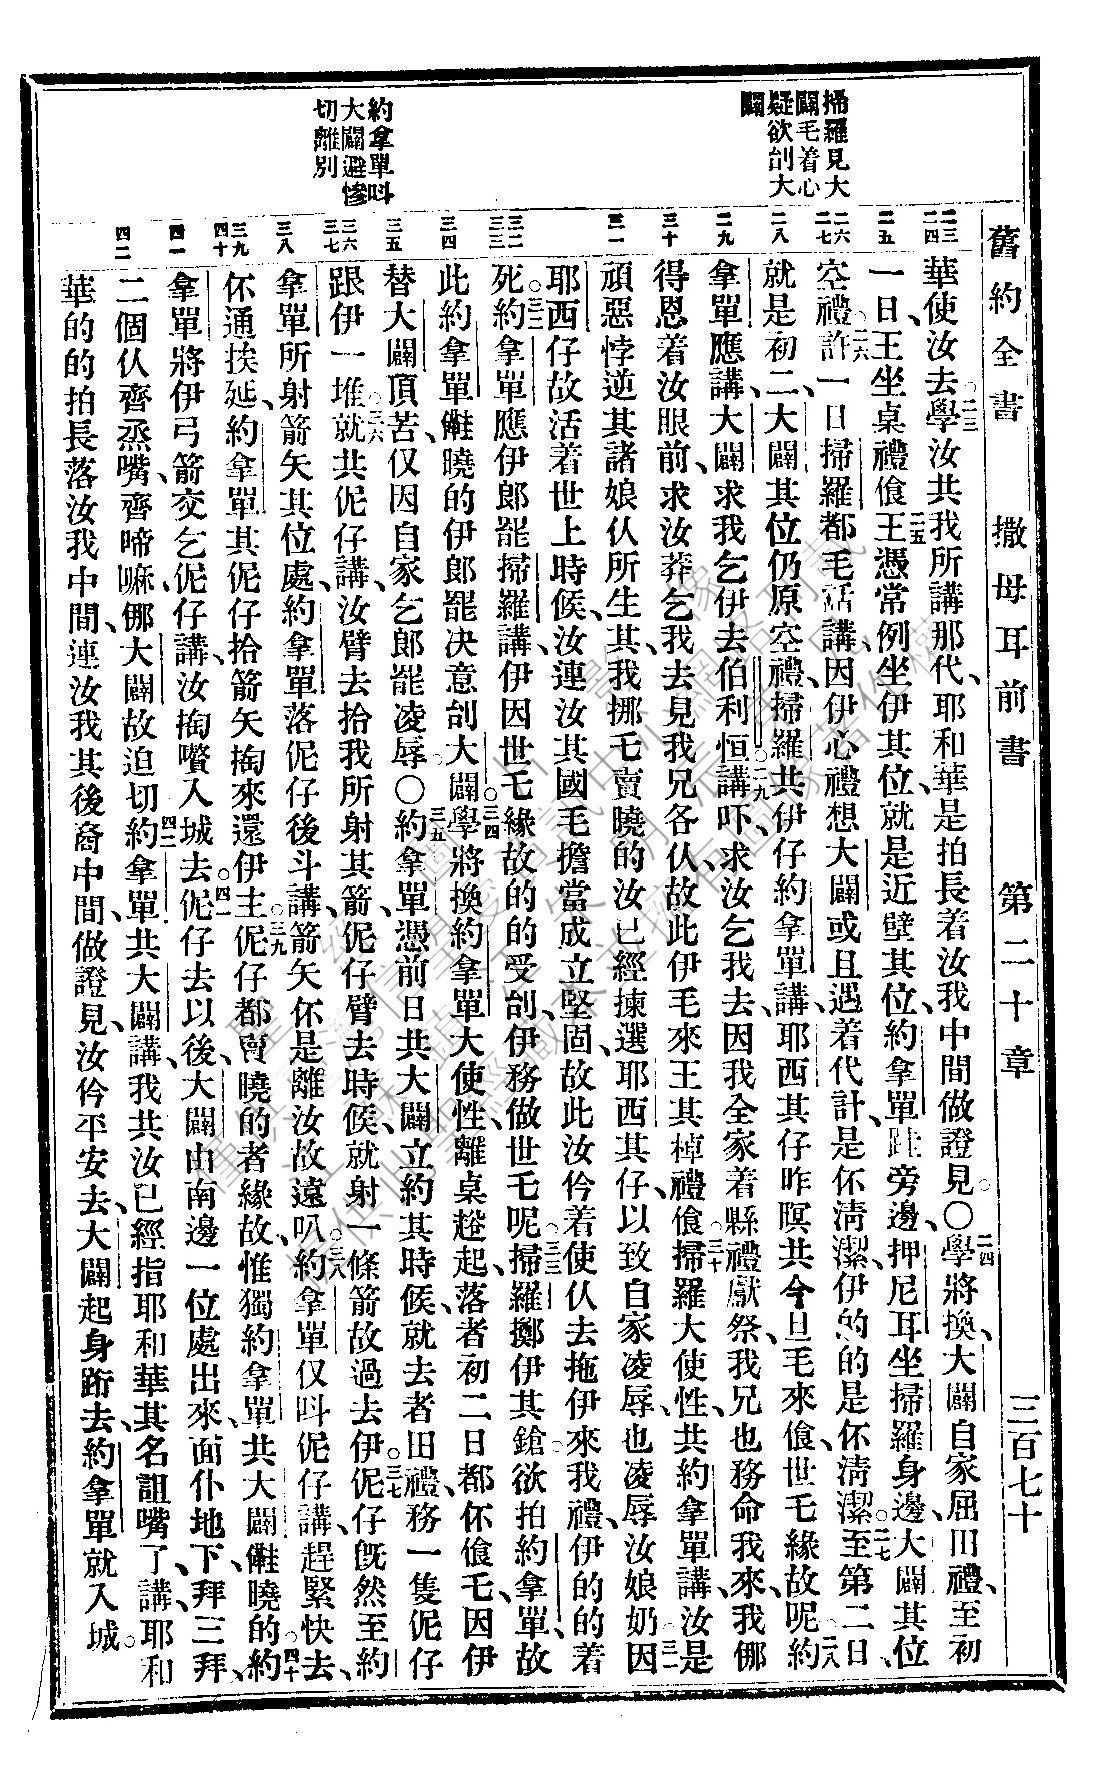 舊約全書 撒母耳前書 第二十章 三百七十
掃羅見大
闢毛着心
疑欲刣大
闢
約拿單呌
大闢避慘
切離別
二三 二四 二五 二六 二七 二八 二九 三十 三一 三二 三三 三四 三五 三六 三七 三八 三九 四十 四一 四二
華使汝去○二三學汝共我所講那代、耶和華是拍長着汝我中間做證見○○二四學將換大闢自家屈田禮、至初
一日、王坐桌禮食二五王憑常例坐伊其位、就是近壁其位、約拿單跬旁邊、押尼耳坐掃羅身邊、大闢其位
空禮○二六許一日掃羅都毛話講、因伊心禮想大闢或且遇着代計是伓淸潔、伊的的是伓淸潔○二七至第二日
就是初二、大闢其位仍原空禮、掃羅共伊仔約拿單講、耶西其仔昨暝共今旦毛來食、世乇緣故呢○二八約
拿單應講、大闢求我乞伊去伯利恒○二九講吓、求汝乞我去、因我全家着縣禮獻祭、我兄也務命我來、我倻
得恩着汝眼前、求汝莽乞我去見我兄各仈、故此伊毛來王其棹禮食○三十掃羅大使性、共約拿單講、汝是
頑惡悖逆其諸娘仈所生其、我挪乇賣曉的汝已經揀選耶西其仔、以致自家凌辱、也凌辱汝娘奶○三一因
耶西仔故活着世上時候、汝連汝其國毛擔當成立堅固、故此汝仱着使仈去拖伊來我禮、伊的的着
死○三二約拿單應伊郎罷掃羅講、伊因世乇緣故的的受刣、伊務做世乇呢○三三掃羅擲伊其鎗、欲拍約拿單、故
此約拿單儺曉的伊郎罷决意刣大闢○三四學將換約拿單大使性、離桌趖起、落者初二日都伓食乇、因伊
替大闢頂苦、仅因自家乞郎罷凌辱○○三五約拿單憑前日共大闢立約其時候、就去者田禮、務一隻伲仔
跟伊一堆○三六就共伲仔講、汝臂去拾我所射其箭、伲仔臂去時候、就射一條箭故過去伊○三七伲仔旣然至約
拿單所射箭矢其位處、約拿單落伲仔後斗講、箭矢伓是離汝故遠叭○三八約拿單仅呌伲仔講、趕緊快去、
伓通挨延、約拿單其伲仔拾箭矢掏來還伊主○三九伲仔都賣曉的者緣故、惟獨約拿單共大闢儺曉的○四十約
拿單將伊弓箭交乞伲仔講、汝掏囋入城去○四一伲仔去以後、大闢由南邊一位處出來、面仆地下、拜三拜、
二個仈齊烝嘴、齊啼嘛、倻大闢故迫切○四二約拿單共大闢講、我共汝已經指耶和華其名詛嘴了講、耶和
華的的拍長落汝我中間、連汝我其後裔中間、做證見、汝仱平安去、大闢起身跲去、約拿單就入城○